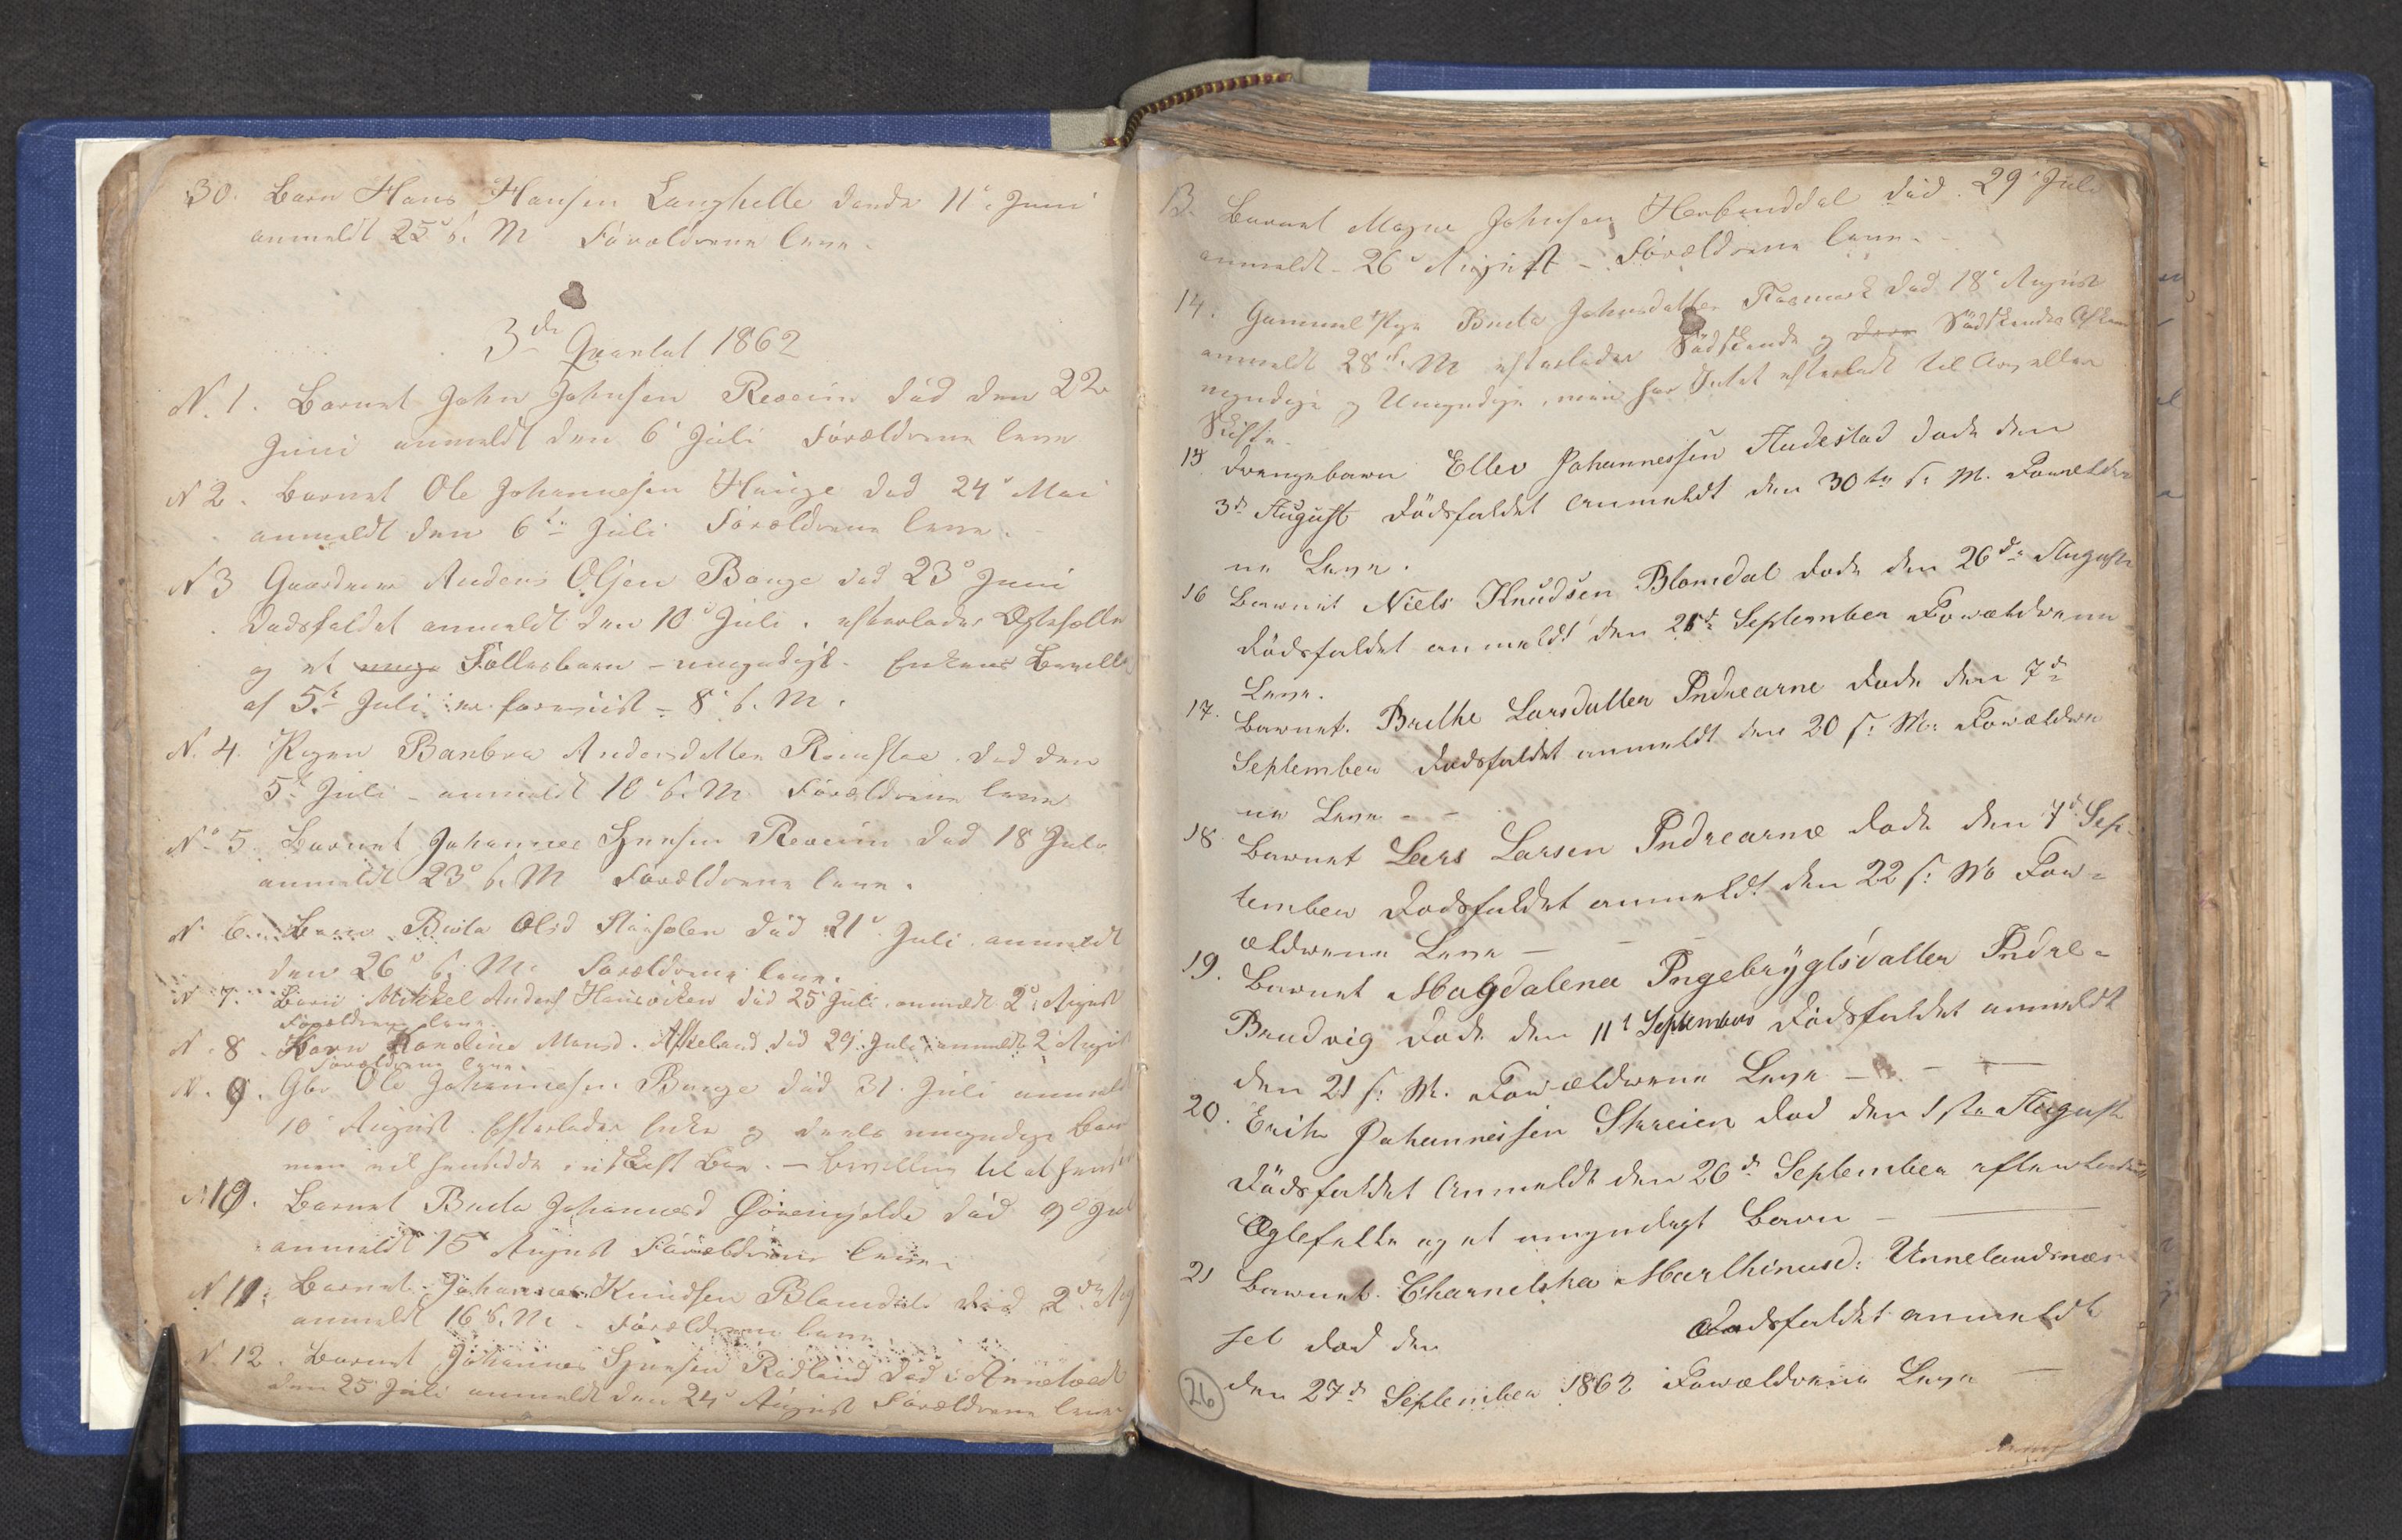 30. Barn Hans Hansen Langhelle døde 11te Juni
anmeldt 25de s. M. Forældrene leve.
3de Qvartal 1862
N. 1. Barnet John Johnsen død den 22
Juni anmeldt den 6te Juli Forældrene leve
N 2. Barnet Ole Johannesen Hauge død 24de Mai
anmeldt den 6te Juli Forældrene leve.
N 3 Gaardmand Anders Olsen Bange død 23de Juni
Dødsfaldet anmeldt den 10de Juli. efterlader Ægtefælle
og et Fællesbarn - umyndigt. Enkens Bevilling
af 5te Juli er - 8de s. M.
N. 4. Pigen Barbra Andersdatter død den
5te Juli - anmeldt 10de s. M. Forældrene leve
No 5. Barnet Johannes død 18 Juli
anmeldt 23de s. M. Forældrene leve.
N 6. Barn Brita Olsd død 21de Juli anmeldt
den 26de s. M. Forældrene leve.
N 7. Barn Mikkel Anders Hausviken død 25 Juli anmeldt 2de August
Forældrene leve.
N. 8. Barn Karoline Monsd. Askeland død 29. Juli anmeldt 2 August
Forældrene leve.
N. 9. Gbr. Ole Johannesen Bange død 31. Juli anmeldt
10de August. Efterlader Enke og deels umyndige Børn
men vil hensidde i uskift Bo. - Bevilling til at
N 10. Barnet Brita Johannesd død 9de Juli
anmeldt 15de August Forældrene leve.
N 11. Barnet Johannes Knudsen Blomdal død 2den Aug
anmeldt 16 s. M. - Forældrene leve.
N. 12. Barnet Johannes Rødland død i
den 25 Juli anmeldt den 24de August Forældrene leve
13. Barnet Magne Johnsen død 29de Juli
anmeldt - 26de August - Forældrene leve.
14. Gammel Pige Brita Johnsdatter død 18de August
anmeldt 28de s. M. efterlader Sødskende og Sødskendes
myndige og Umyndige, men har Intet efterladt til Arv eller
Skifte.
15. Drengebarn Ellev Johannessen Audestad døde den
3de August Dødsfaldet Anmeldt den 30te s. M. Forældre
ne Leve.
16 Barnet Niels Knudsen Blomdal døde den 26de August
Dødsfaldet anmeldt den 21de September Forældrene
Leve.
17. Barnet. Brithe Larsdatter Indrearne døde den 7de
September Dødsfaldet anmeldt den 20 s. M. Forældre
ne Leve - -
18 Barnet Lars Larsen Indrearne døde den 7de Sep-
tember Dødsfaldet anmeldt den 22 s. M. For-
ældrene Leve -
19. Barnet Magdalena Ingebrygtsdatter Indre-
Brudvig døde den 11te September Dødsfaldet anmeldt
den 21 s. M. Forældrene Leve -
20. Erik Johannessen Skreien død den 1ste August
Dødsfaldet Anmeldt den 26de September efterladende
Ægtefelle og et umyndigt Barn -
21 Barnet. Marthinusd: Unnelandsnæs-
set død den Dødsfaldet anmeldt
den 27de September 1862 Forældrene Leve -
26